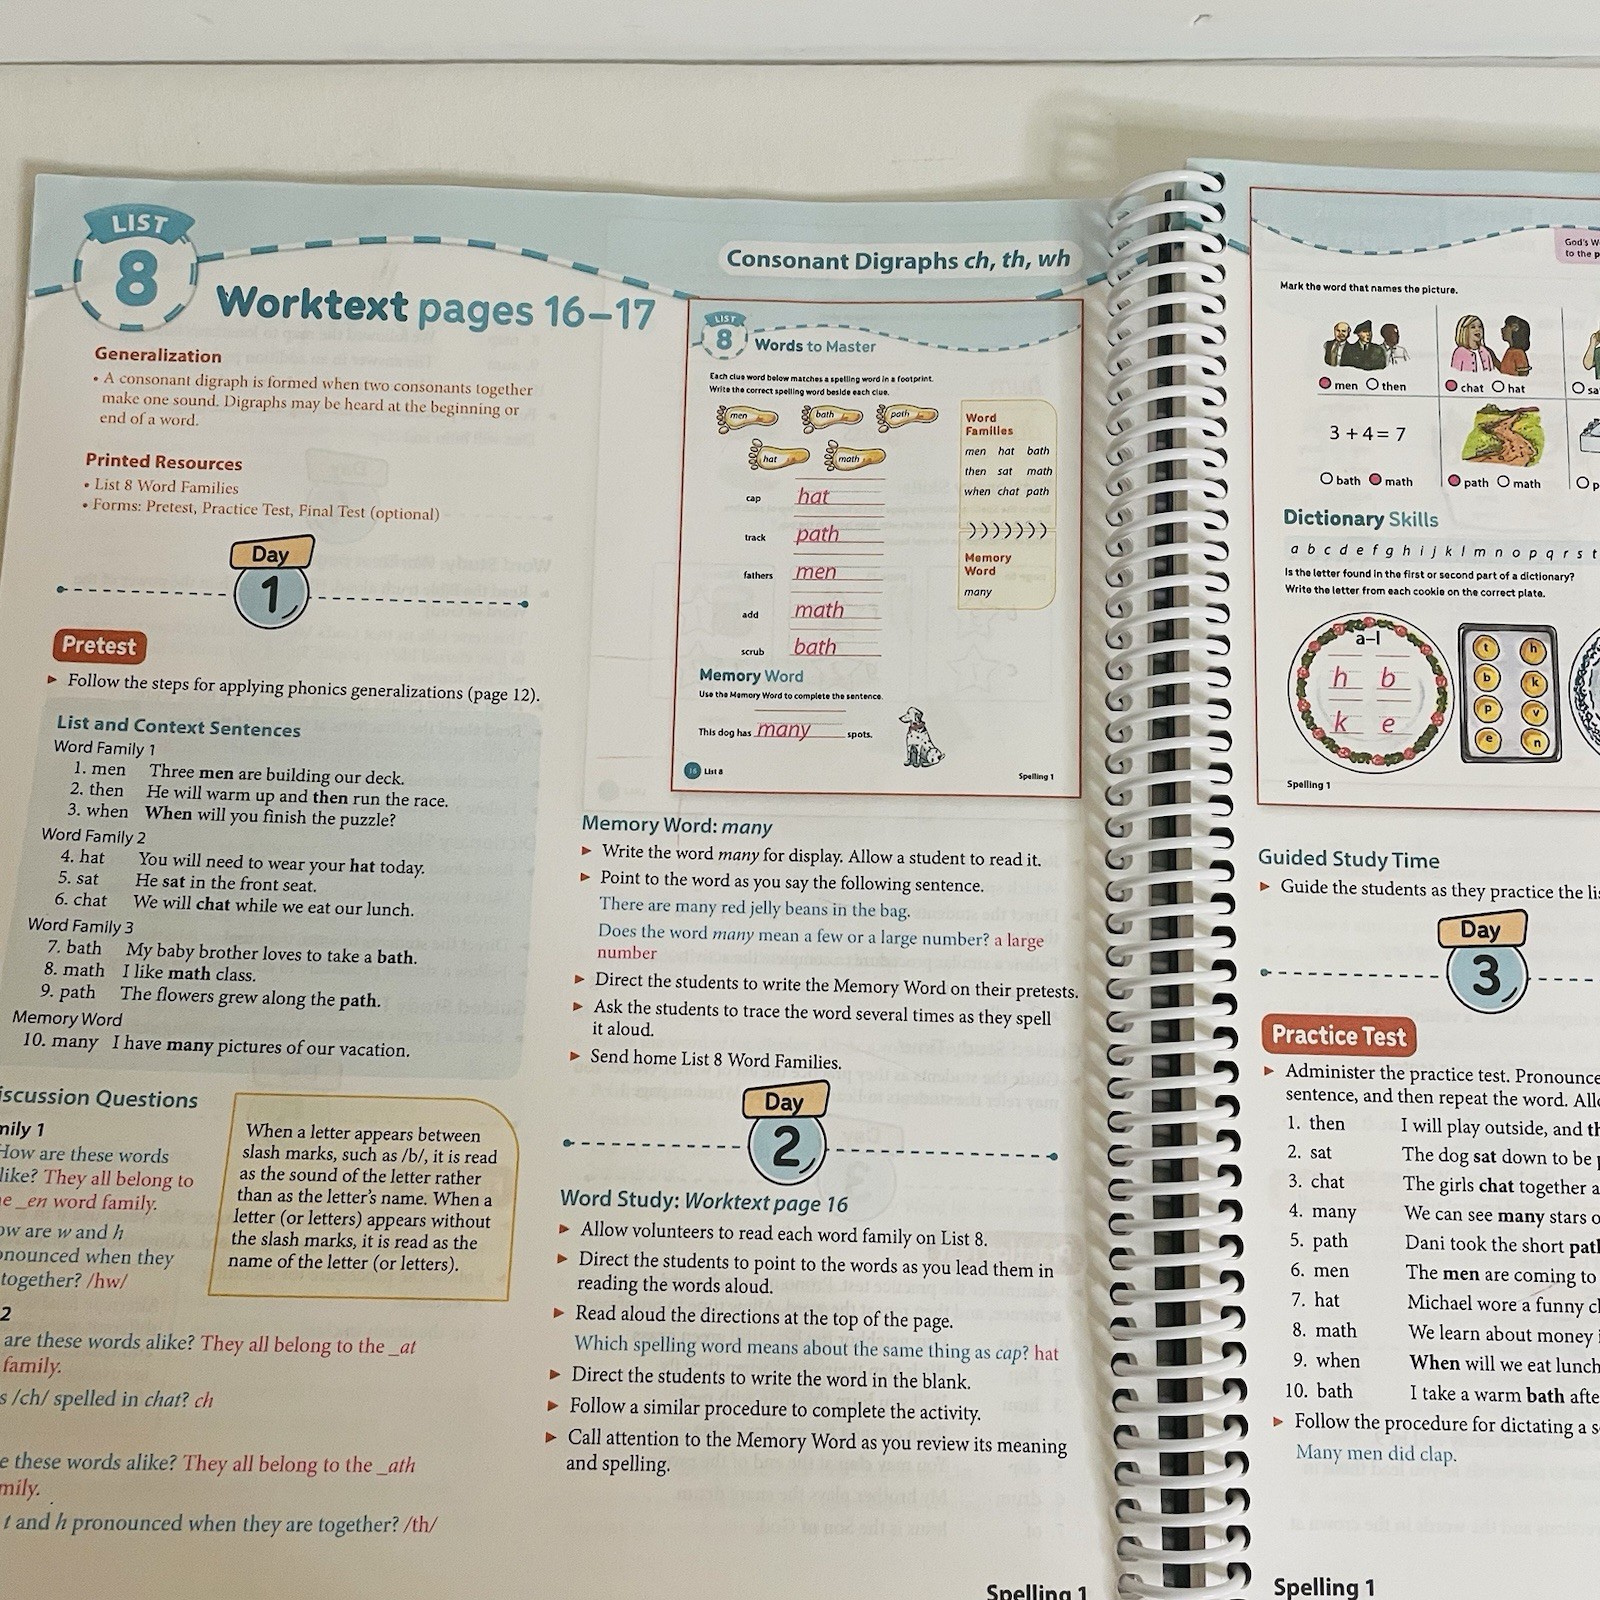 LIST
8
Worktext pages 16–17
Consonant Digraphs ch, th, wh
Generalization
• A consonant digraph is formed when two consonants together
make one sound. Digraphs may be heard at the beginning or
end of a word.
Printed Resources
• List 8 Word Families
• Forms: Pretest, Practice Test, Final Test (optional)
Day
1
Pretest
▸ Follow the steps for applying phonics generalizations (page 12).
List and Context Sentences
Word Family 1
1. men Three men are building our deck.
2. then He will warm up and then run the race.
3. when When will you finish the puzzle?
Word Family 2
4. hat You will need to wear your hat today.
5. sat He sat in the front seat.
6. chat We will chat while we eat our lunch.
Word Family 3
7. bath My baby brother loves to take a bath.
8. math I like math class.
9. path The flowers grew along the path.
Memory Word
10. many I have many pictures of our vacation.
Questions
1
How are these words
like? They all belong to
_en word family.
are w and h
when they
together? /hw/
2
are these words alike? They all belong to the _at
family.
/ch/ spelled in chat? ch
these words alike? They all belong to the _ath
t and h pronounced when they are together? /th/
When a letter appears between
slash marks, such as /b/, it is read
as the sound of the letter rather
than as the letter's name. When a
letter (or letters) appears without
the slash marks, it is read as the
name of the letter (or letters).
LIST
8
Words to Master
Each clue word below matches a spelling word in a footprint.
Write the correct spelling word beside each clue.
men bath path
hat math
cap hat
track path
fathers men
add math
scrub bath
Word
Families
men hat bath
then sat math
when chat path
Memory
Word
many
Memory Word
Use the Memory Word to complete the sentence.
This dog has many spots.
16 List 8
Spelling 1
Memory Word: many
▸ Write the word many for display. Allow a student to read it.
▸ Point to the word as you say the following sentence.
There are many red jelly beans in the bag.
Does the word many mean a few or a large number? a large
number
▸ Direct the students to write the Memory Word on their pretests.
▸ Ask the students to trace the word several times as they spell
it aloud.
▸ Send home List 8 Word Families.
Day
2
Word Study: Worktext page 16
▸ Allow volunteers to read each word family on List 8.
▸ Direct the students to point to the words as you lead them in
reading the words aloud.
▸ Read aloud the directions at the top of the page.
Which spelling word means about the same thing as cap? hat
▸ Direct the students to write the word in the blank.
▸ Follow a similar procedure to complete the activity.
▸ Call attention to the Memory Word as you review its meaning
and spelling.
Spelling 1
God's
to the
Mark the word that names the picture.
men then
chat hat
3 + 4 = 7
bath math
path math
Dictionary Skills
a b c d e f g h i j k l m n o p q r s t
Is the letter found in the first or second part of a dictionary?
Write the letter from each cookie on the correct plate.
a–l
h b
k e
t h
b k
p v
e n
Spelling 1
Guided Study Time
▸ Guide the students as they practice the
Day
3
Practice Test
▸ Administer the practice test. Pronounce
sentence, and then repeat the word.
1. then I will play outside, and
2. sat The dog sat down to be
3. chat The girls chat together
4. many We can see many stars
5. path Dani took the short
6. men The men are coming to
7. hat Michael wore a funny
8. math We learn about money
9. when When will we eat lunch
10. bath I take a warm bath
▸ Follow the procedure for dictating a
Many men did clap.
Spelling 1